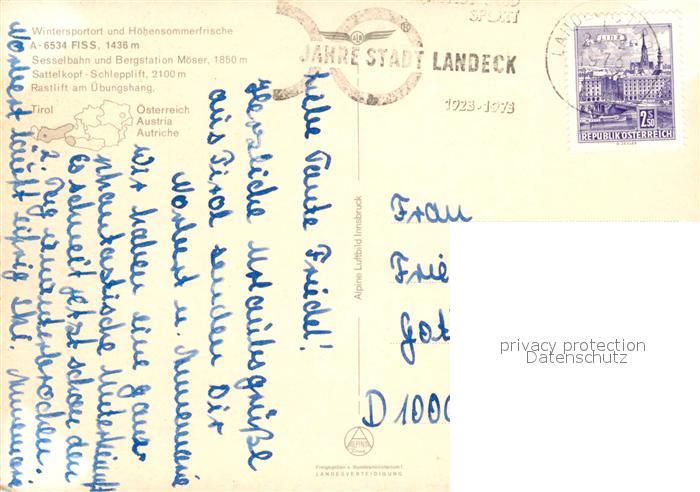 Wintersportort und Höhensommerfrische
A-6534 FISS, 1436 m
Sesselbahn und Bergstation Möser, 1850 m
Sattelkopf-Schlepplift, 2100 m
Rastlift am Übungshang,
Tirol
Österreich
Austria
Autriche
SPORT
JAHRE STADT LANDECK
1923-1973
LINZ
2S50
REPUBLIK ÖSTERREICH
Liebe Tante Friedel!
Herzliche Urlaubsgrüße
aus Tirol senden Dir
Norbert u. Annemarie
Wir haben eine ganz
phantastische Unterkunft
Es schneit jetzt schon den
2. Tag ununterbrochen.
Norbert läuft eifrig Ski. Annemarie
Alpine Luftbild Innsbruck
Frau
Frie
Got
D 1000
privacy protection
Datenschutz
ALPINE
Freigegeben v. Bundesministerium f.
LANDESVERTEIDIGUNG